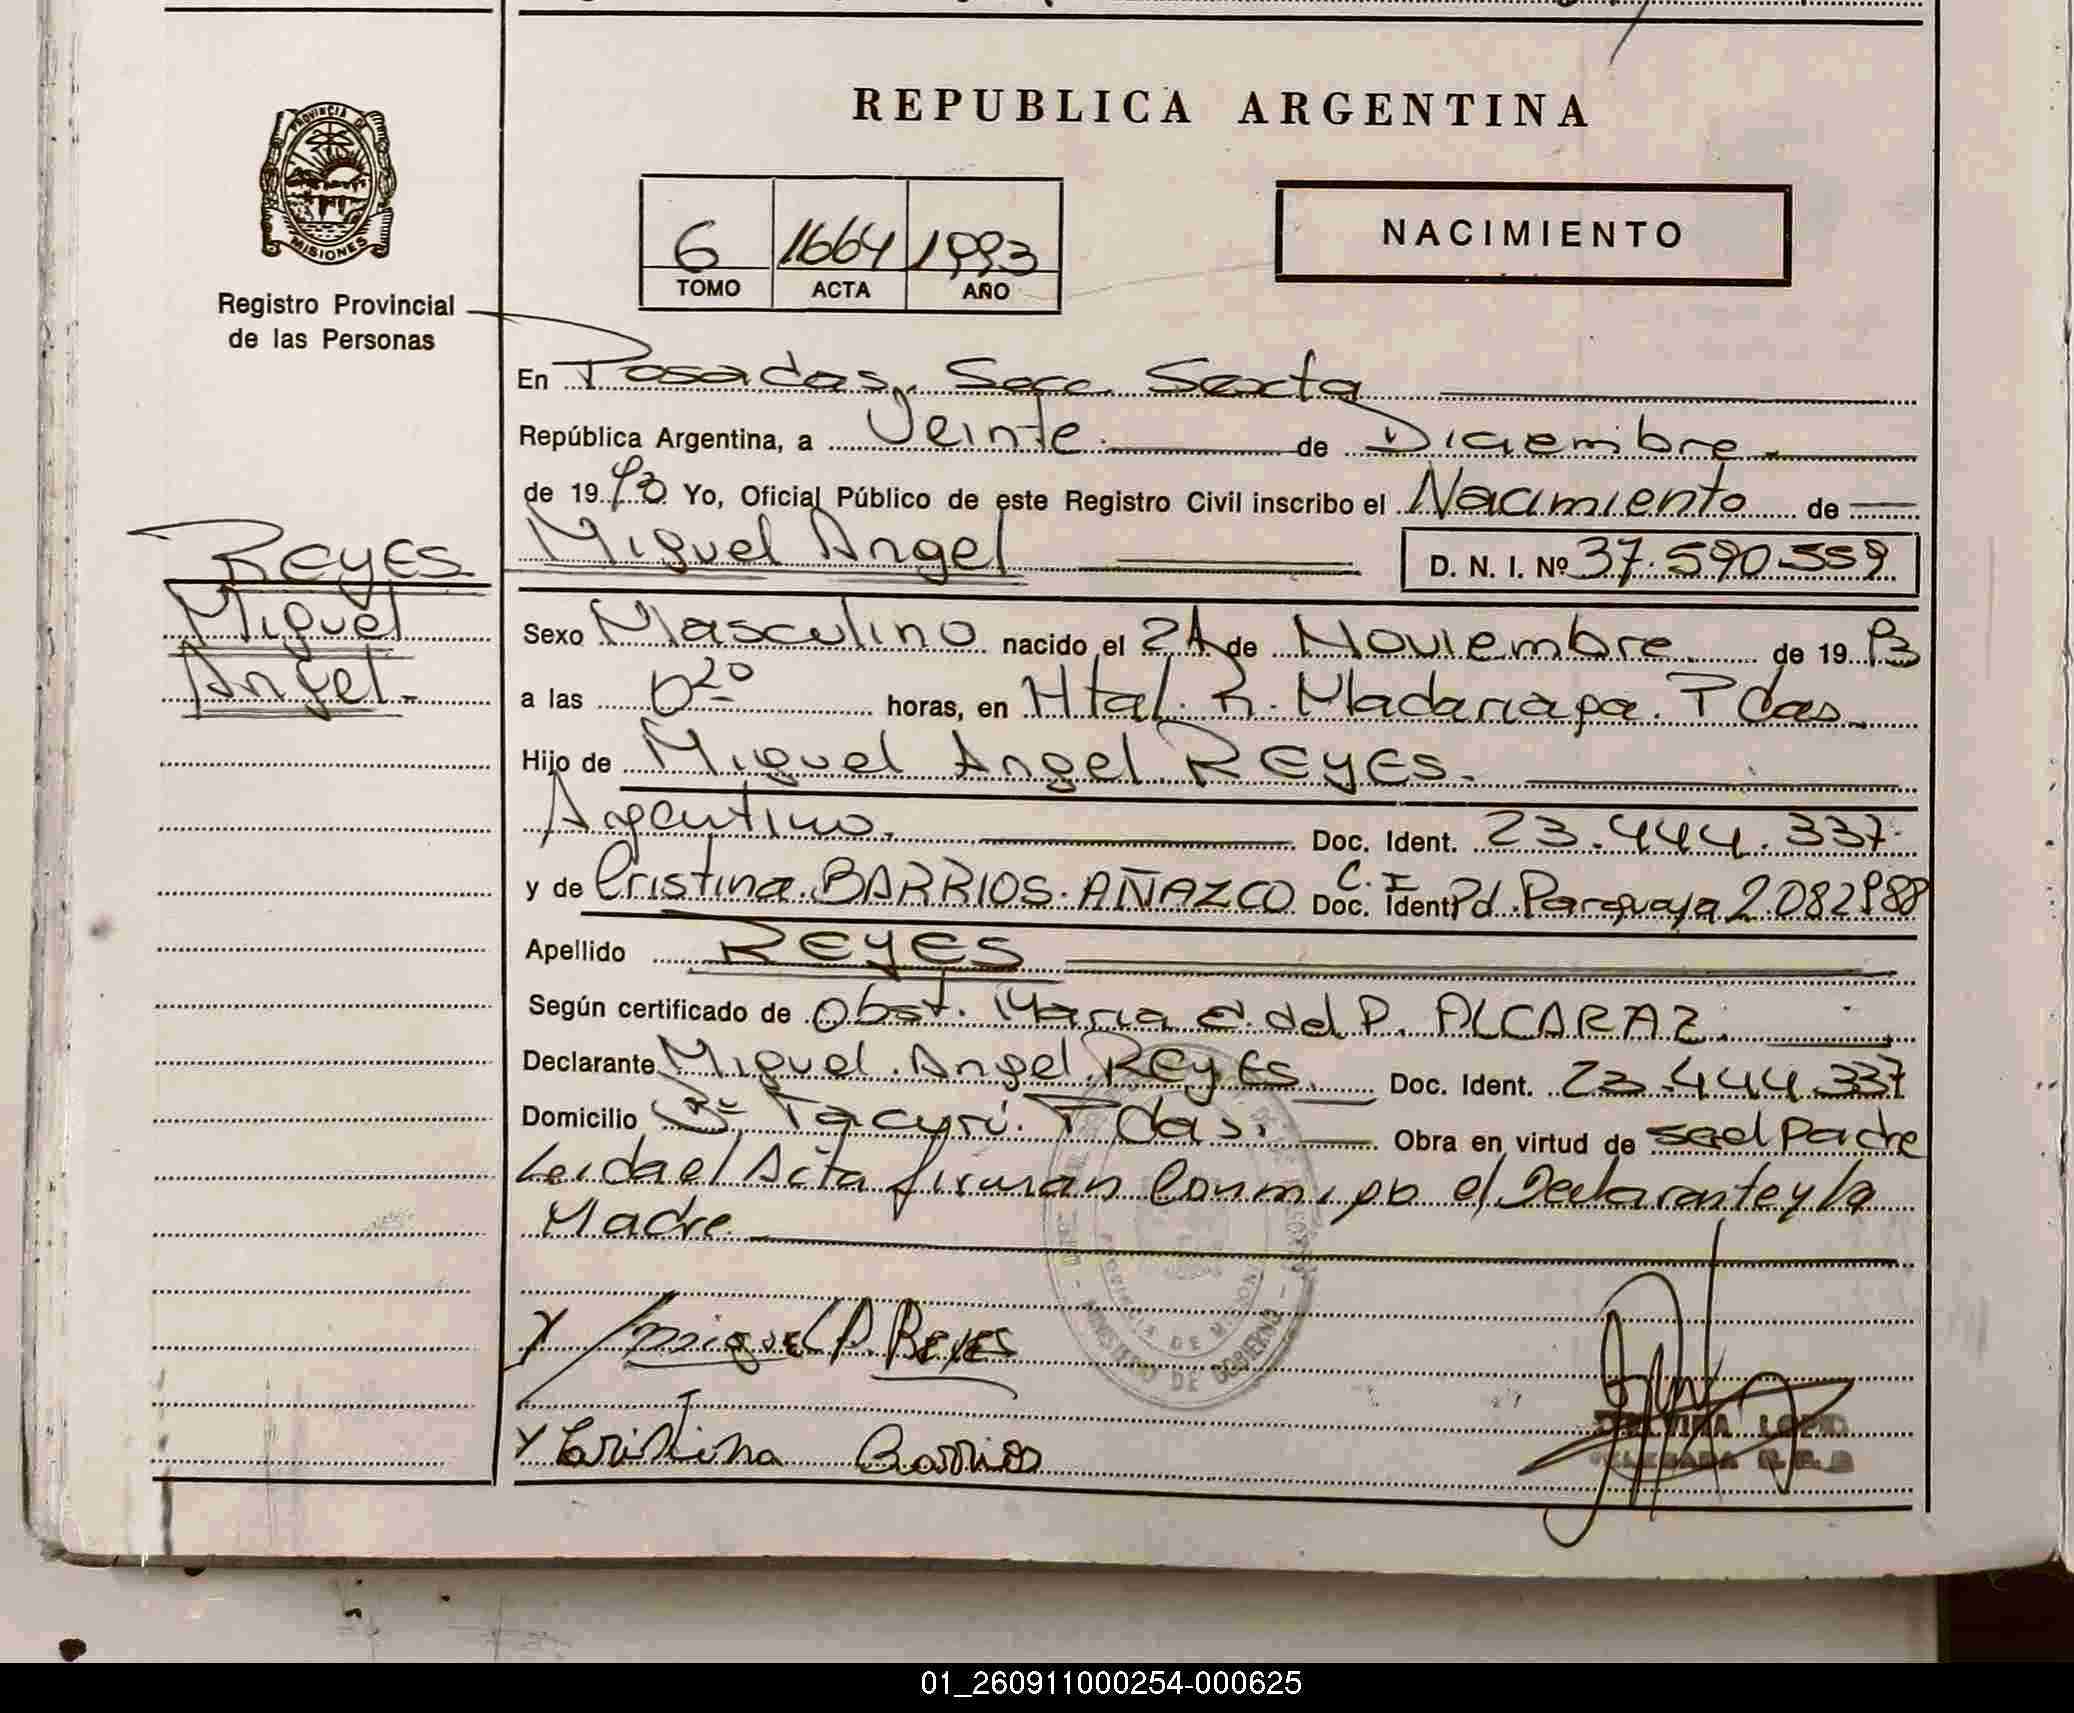 REPUBLICA ARGENTINA
PROVINCIA DE
MISIONES
Registro Provincial
de las Personas
6 1664 1993
TOMO ACTA AÑO
NACIMIENTO
En Posadas, Secc. Sexta
República Argentina, a Veinte de Diciembre
de 1993 Yo, Oficial Público de este Registro Civil inscribo el Nacimiento de
REYES
Miguel
Angel
Miguel Angel D. N. I. Nº 37.590.559
Sexo Masculino nacido el 21 de Noviembre de 1993
a las 0 20 horas, en Htal. R. Madariaga. Pdas.
Hijo de Miguel Angel REYES.
Argentino. Doc. Ident. 23.444.337
y de Cristina BARRIOS AÑAZCO C.I Doc. Ident. Pd. Paraguaya 2.082.988
Apellido REYES
Según certificado de Obst. Maria E. del P. ALCARAZ.
Declarante Miguel Angel REYES Doc. Ident. 23.444.337
Domicilio Bº Tacurú. Pdas. Obra en virtud de ser el Padre
Leida el Acta firman conmigo el Declarante y la
Madre.
PROVINCIA DE MISIONES
MINISTERIO DE GOBIERNO
Miguel A. Reyes
Cristina Barrios
01_260911000254-000625